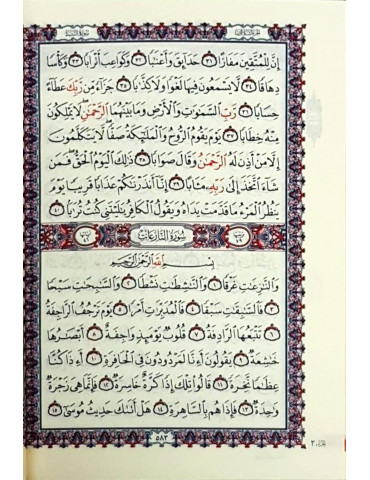 إِنَّ لِلْمُتَّقِينَ مَفَازًا ٣١ حَدَائِقَ وَأَعْنَابًا ٣٢ وَكَوَاعِبَ أَتْرَابًا ٣٣ وَكَأْسًا
دِهَاقًا ٣٤ لَا يَسْمَعُونَ فِيهَا لَغْوًا وَلَا كِذَّابًا ٣٥ جَزَاءً مِنْ رَبِّكَ عَطَاءً
حِسَابًا ٣٦ رَبِّ السَّمَٰوَاتِ وَالْأَرْضِ وَمَا بَيْنَهُمَا الرَّحْمَٰنِ لَا يَمْلِكُونَ
مِنْهُ خِطَابًا ٣٧ يَوْمَ يَقُومُ الرُّوحُ وَالْمَلَٰئِكَةُ صَفًّا لَا يَتَكَلَّمُونَ
إِلَّا مَنْ أَذِنَ لَهُ الرَّحْمَٰنُ وَقَالَ صَوَابًا ٣٨ ذَٰلِكَ الْيَوْمُ الْحَقُّ فَمَنْ
شَاءَ اتَّخَذَ إِلَىٰ رَبِّهِ مَآبًا ٣٩ إِنَّا أَنْذَرْنَاكُمْ عَذَابًا قَرِيبًا يَوْمَ
يَنْظُرُ الْمَرْءُ مَا قَدَّمَتْ يَدَاهُ وَيَقُولُ الْكَافِرُ يَٰلَيْتَنِي كُنْتُ تُرَابًا ٤٠
سُورَةُ النَّازِعَاتِ
بِسْمِ اللَّهِ الرَّحْمَٰنِ الرَّحِيمِ
وَالنَّٰزِعَٰتِ غَرْقًا ١ وَالنَّٰشِطَٰتِ نَشْطًا ٢ وَالسَّٰبِحَٰتِ سَبْحًا
٣ فَالسَّٰبِقَٰتِ سَبْقًا ٤ فَالْمُدَبِّرَٰتِ أَمْرًا ٥ يَوْمَ تَرْجُفُ الرَّاجِفَةُ
٦ تَتْبَعُهَا الرَّادِفَةُ ٧ قُلُوبٌ يَوْمَئِذٍ وَاجِفَةٌ ٨ أَبْصَٰرُهَا
خَٰشِعَةٌ ٩ يَقُولُونَ أَءِنَّا لَمَرْدُودُونَ فِي الْحَافِرَةِ ١٠ أَءِذَا كُنَّا
عِظَٰمًا نَخِرَةً ١١ قَالُوا تِلْكَ إِذًا كَرَّةٌ خَاسِرَةٌ ١٢ فَإِنَّمَا هِيَ زَجْرَةٌ
وَٰحِدَةٌ ١٣ فَإِذَا هُمْ بِالسَّاهِرَةِ ١٤ هَلْ أَتَىٰكَ حَدِيثُ مُوسَىٰ ١٥
٥٨٣